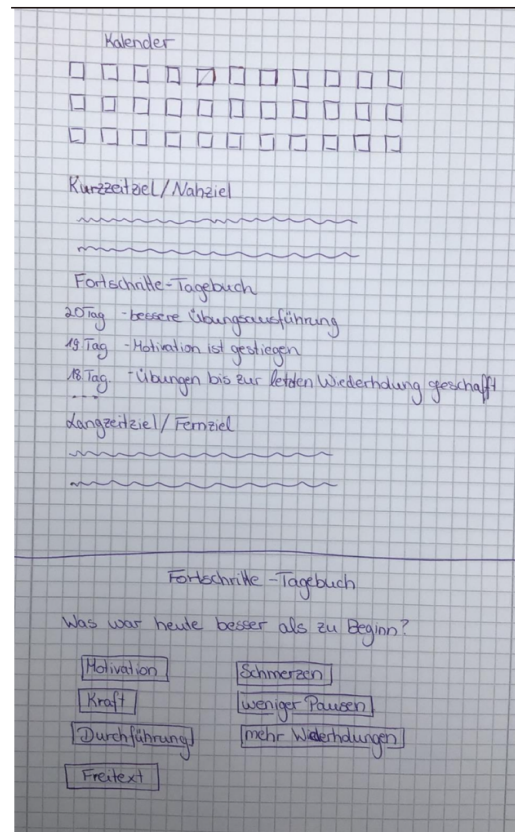 Kalender
Kurzzeitziel/Nahziel
Fortschritte-Tagebuch
20Tag - bessere Übungsausführung
19.Tag - Motivation ist gestiegen
18.Tag. - Übungen bis zur letzten Wiederholung geschafft
...
Langzeitziel/Fernziel
Fortschritte-Tagebuch
Was war heute besser als zu Beginn?
Motivation Schmerzen
Kraft weniger Pausen
Durchführung mehr Wiederholungen
Freitext